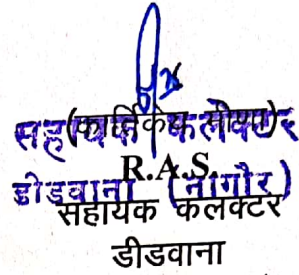 सहायक कलेक्टर
R.A.S.
डीडवाना (नागौर)
सहायक कलक्टर
डीडवाना